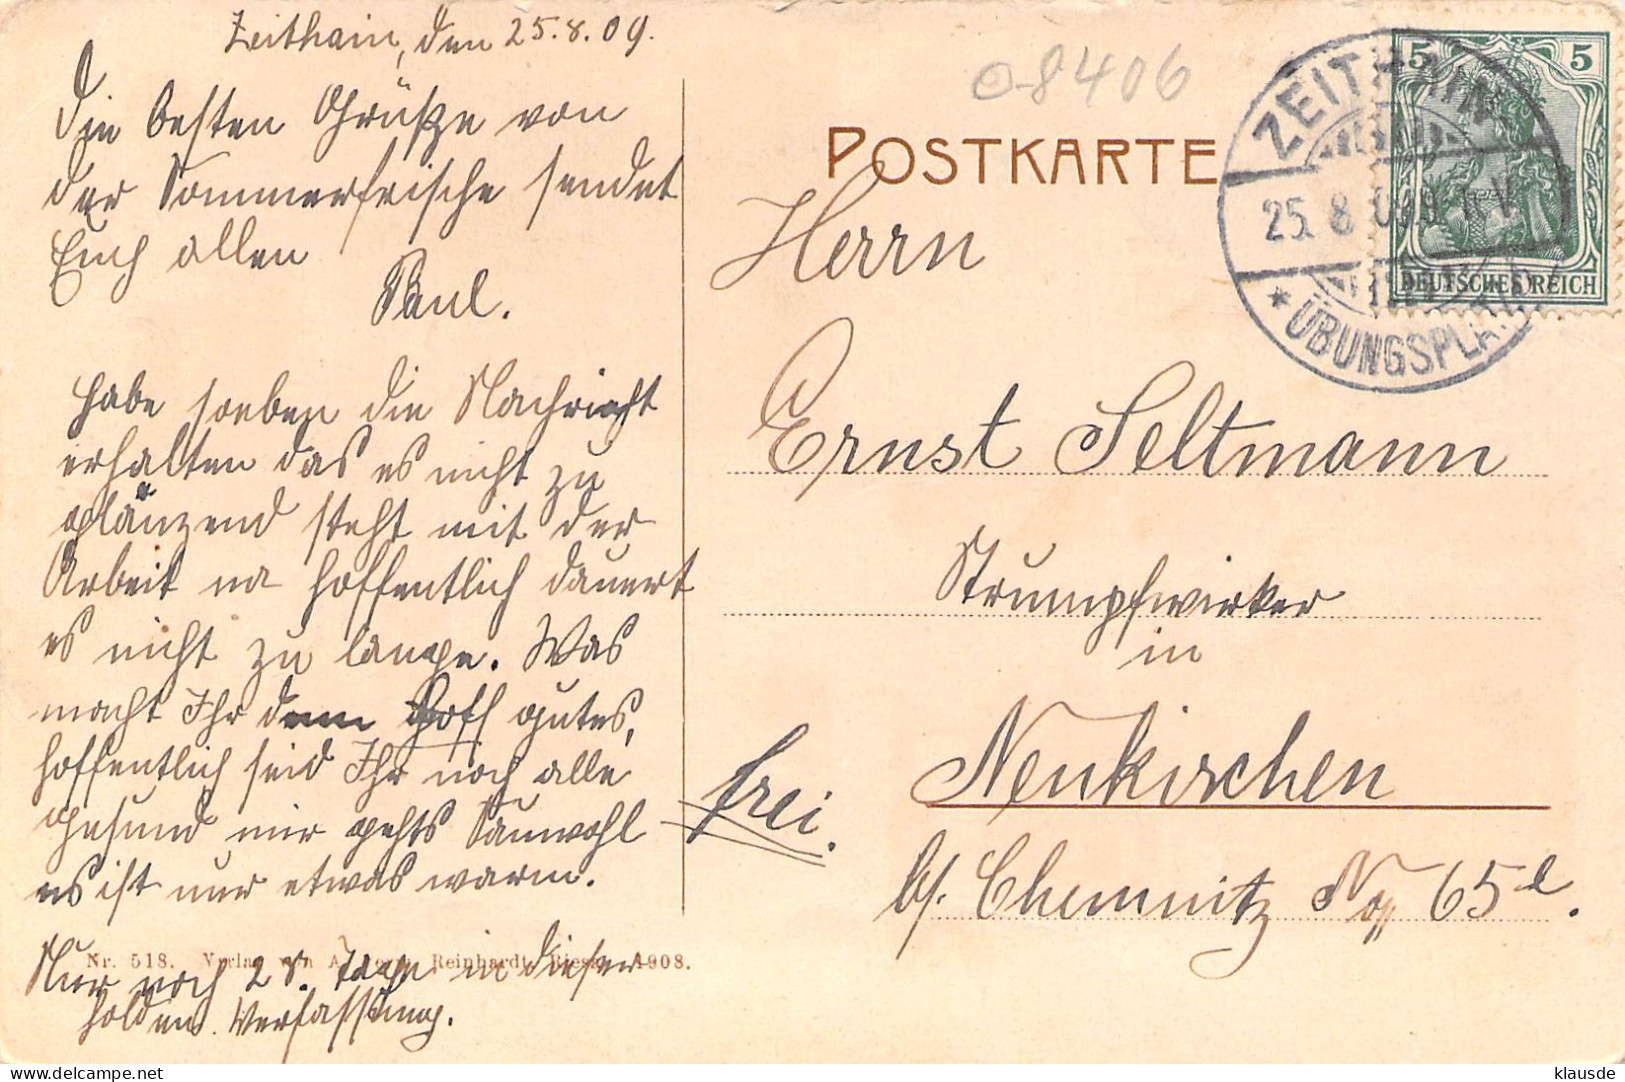 Zeithain, den 25.8.09.
Die besten Grüße von
der Sommerfrische sendet
Euch allen
Paul.
Habe soeben die Nachricht
erhalten das es nicht zu
glänzend steht mit der
Arbeit na hoffentlich dauert
es nicht zu lange. Was
macht Ihr denn Hoff gutes,
hoffentlich seid Ihr noch alle
gesund mir gehts Sauwohl
es ist nur etwas warm.
Nur noch 28. Tage in dieser
holden Verfassung.
Nr. 518. Verlag von Reinhardt, Riesa 1908.
08406
POSTKARTE
ZEITHAIN
25. 8 09
* ÜBUNGSPLATZ
5 5
DEUTSCHES REICH
Herrn
Ernst Seltmann
Strumpfwirker
in
Neukirchen
frei.
b/. Chemnitz No 65 l.
klausde